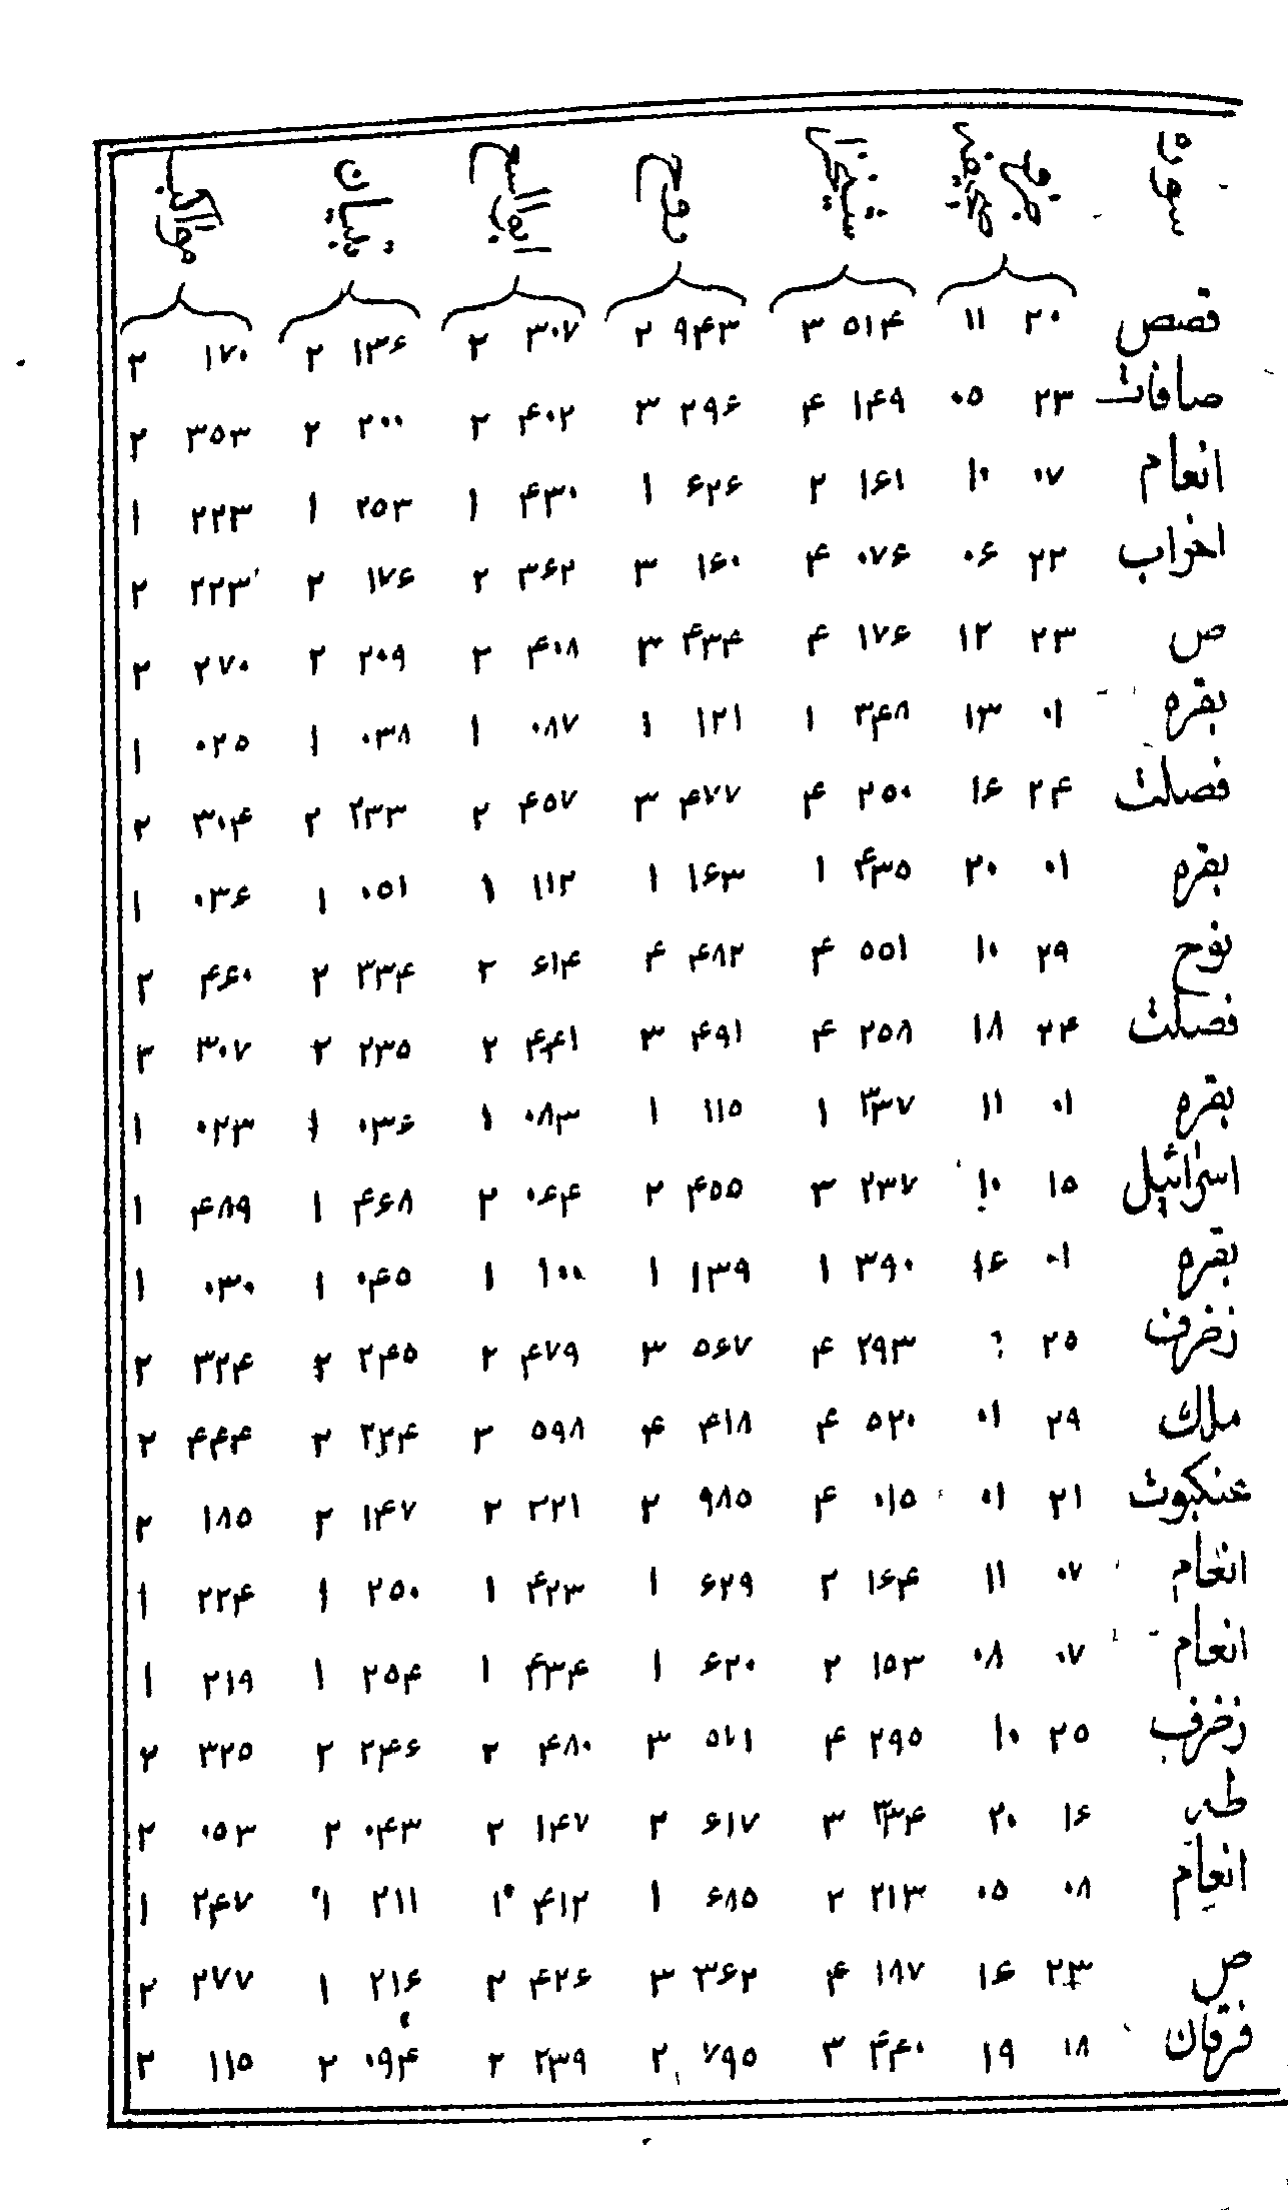 سوره جزء صفحه شیخ روح ابوالفتوح تبیان مواهب
قصص ۲۰ ۱۱ ۵۱۴ ۳ ۹۴۳ ۲ ۳۰۷ ۲ ۱۳۶ ۲ ۱۷۰ ۲
صافات ۲۳ ۰۵ ۱۴۹ ۴ ۲۹۶ ۳ ۴۰۲ ۲ ۲۰۰ ۲ ۳۵۳ ۲
انعام ۰۷ ۱۰ ۱۶۱ ۲ ۶۲۶ ۱ ۴۳۰ ۱ ۲۵۳ ۱ ۲۲۳ ۱
احزاب ۲۲ ۰۶ ۰۷۶ ۴ ۱۶۰ ۳ ۳۶۲ ۲ ۱۷۶ ۲ ۲۲۳ ۲
ص ۲۳ ۱۲ ۱۷۶ ۴ ۴۳۴ ۳ ۴۰۸ ۲ ۲۰۹ ۲ ۲۷۰ ۲
بقره ۰۱ ۱۳ ۳۴۸ ۱ ۱۲۱ ۱ ۰۸۷ ۱ ۰۳۸ ۱ ۰۲۵ ۱
فصلت ۲۴ ۱۶ ۲۵۰ ۴ ۴۷۷ ۳ ۴۵۷ ۲ ۲۳۳ ۲ ۳۰۴ ۲
بقره ۰۱ ۲۰ ۴۳۵ ۱ ۱۶۳ ۱ ۱۱۲ ۱ ۰۵۱ ۱ ۰۳۶ ۱
نوح ۲۹ ۱۰ ۵۵۱ ۴ ۴۸۲ ۴ ۶۱۴ ۲ ۳۳۴ ۲ ۴۶۰ ۲
فصلت ۲۴ ۱۸ ۲۵۸ ۴ ۴۹۱ ۳ ۴۴۱ ۲ ۲۳۵ ۲ ۳۰۷ ۳
بقره ۰۱ ۱۱ ۳۳۷ ۱ ۱۱۵ ۱ ۰۸۳ ۱ ۰۳۶ ۱ ۰۲۳ ۱
اسرائیل ۱۵ ۱۰ ۲۳۷ ۳ ۴۵۵ ۲ ۰۶۴ ۲ ۴۶۸ ۱ ۴۸۹ ۱
بقره ۰۱ ۱۶ ۳۹۰ ۱ ۱۳۹ ۱ ۱۰۰ ۱ ۰۴۵ ۱ ۰۳۰ ۱
زخرف ۲۵ ؟ ۲۹۳ ۴ ۵۶۷ ۳ ۴۷۹ ۲ ۲۴۵ ۲ ۳۲۴ ۲
ملك ۲۹ ۰۱ ۵۲۰ ۴ ۴۱۸ ۴ ۵۹۸ ۲ ۳۲۴ ۲ ۴۴۴ ۲
عنكبوت ۲۱ ۰۱ ۰۱۵ ۴ ۹۸۵ ۲ ۳۲۱ ۲ ۱۴۷ ۲ ۱۸۵ ۲
انعام ۰۷ ۱۱ ۱۶۴ ۲ ۶۲۹ ۱ ۴۲۳ ۱ ۲۵۰ ۱ ۲۲۴ ۱
انعام ۰۷ ۰۸ ۱۵۳ ۲ ۶۲۰ ۱ ۴۳۴ ۱ ۲۵۴ ۱ ۲۱۹ ۱
زخرف ۲۵ ۱۰ ۲۹۵ ۴ ۳ ۴۸۰ ۲ ۲۴۶ ۲ ۳۲۵ ۲
طه ۱۶ ۲۰ ۳۳۴ ۳ ۶۱۷ ۲ ۱۴۷ ۲ ۰۴۳ ۲ ۰۵۳ ۲
انعام ۰۸ ۰۵ ۲۱۳ ۲ ۶۸۵ ۱ ۴۱۲ ۱ ۲۱۱ ۱ ۲۴۷ ۱
ص ۲۳ ۱۶ ۱۸۷ ۴ ۳۶۲ ۳ ۴۲۶ ۲ ۲۱۶ ۱ ۲۷۷ ۲
فرقان ۱۸ ۱۹ ۴۴۰ ۳ ۷۹۵ ۲ ۲۳۹ ۲ ۰۹۴ ۲ ۱۱۵ ۲